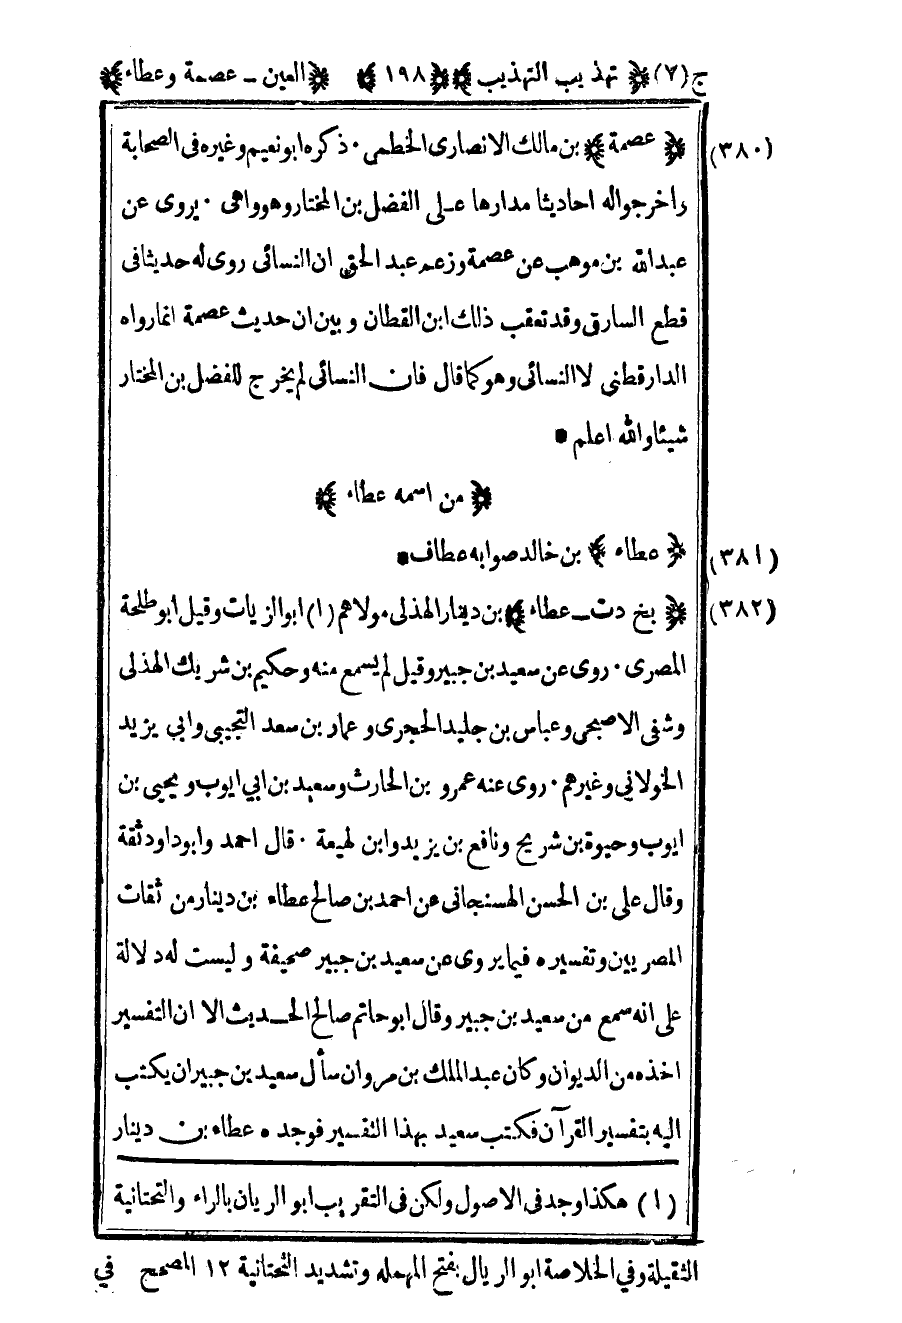 ج (٧) ﴿ تهذيب التهذيب ﴾ ﴿ ١٩٨ ﴾ ﴿ العين ـ عصمة وعطاء ﴾
(٣٨٠) ﴿ عصمة ﴾ بن مالك الانصارى الخطمى . ذكره ابو نعيم وغيره فى الصحابة
واخرجوا له احاديثا مدارها على الفضل بن المختار وهو واهى . يروى عن
عبد الله بن موهب عن عصمة وزعم عبد الحق ان النسائى روى له حديثا فى
قطع السارق وقد تعقب ذلك ابن القطان و بين ان حديث عصمة انما رواه
الدارقطنى لا النسائى وهو كما قال فان النسائى لم يخرج للفضل بن المختار
شيئا والله اعلم •
﴿ من اسمه عطاء ﴾
(٣٨١) ﴿ عطاء ﴾ بن خالد صوابه عطاف •
(٣٨٢) ﴿ بخ دت ـ عطاء ﴾ بن دينار الهذلى مولاهم (١) ابو الزيات وقيل ابو طلحة
المصرى . روى عن سعيد بن جبير وقيل لم يسمع منه وحكيم بن شريك الهذلى
وشفى الاصبحى وعباس بن جليد الحجرى و عمار بن سعد التجيبى وابي يزيد
الخولاني وغيرهم . روى عنه عمرو بن الحارث وسعيد بن ابي ايوب و يحيى بن
ايوب وحيوة بن شريح ونافع بن يزيد وابن لهيعة . قال احمد وابوداود ثقة
وقال علي بن الحسن الهسنجانى عن احمد بن صالح عطاء بن دينار من ثقات
المصريين وتفسيره فيما يروى عن سعيد بن جبير صحيفة و ليست له دلالة
على انه سمع من سعيد بن جبير وقال ابو حاتم صالح الحديث الا ان التفسير
اخذه من الديوان وكان عبد الملك بن مروان سأل سعيد بن جبير ان يكتب
اليه بتفسير القرآن فكتب سعيد بهذا التفسير فوجده عطاء بن دينار
(١) هكذا وجد فى الاصول ولكن فى التقريب ابو الريان بالراء والتحتانية
الثقيلة وفي الخلاصة ابو الريال بفتح المهمله وتشديد التحتانية ١٢ المصحح في